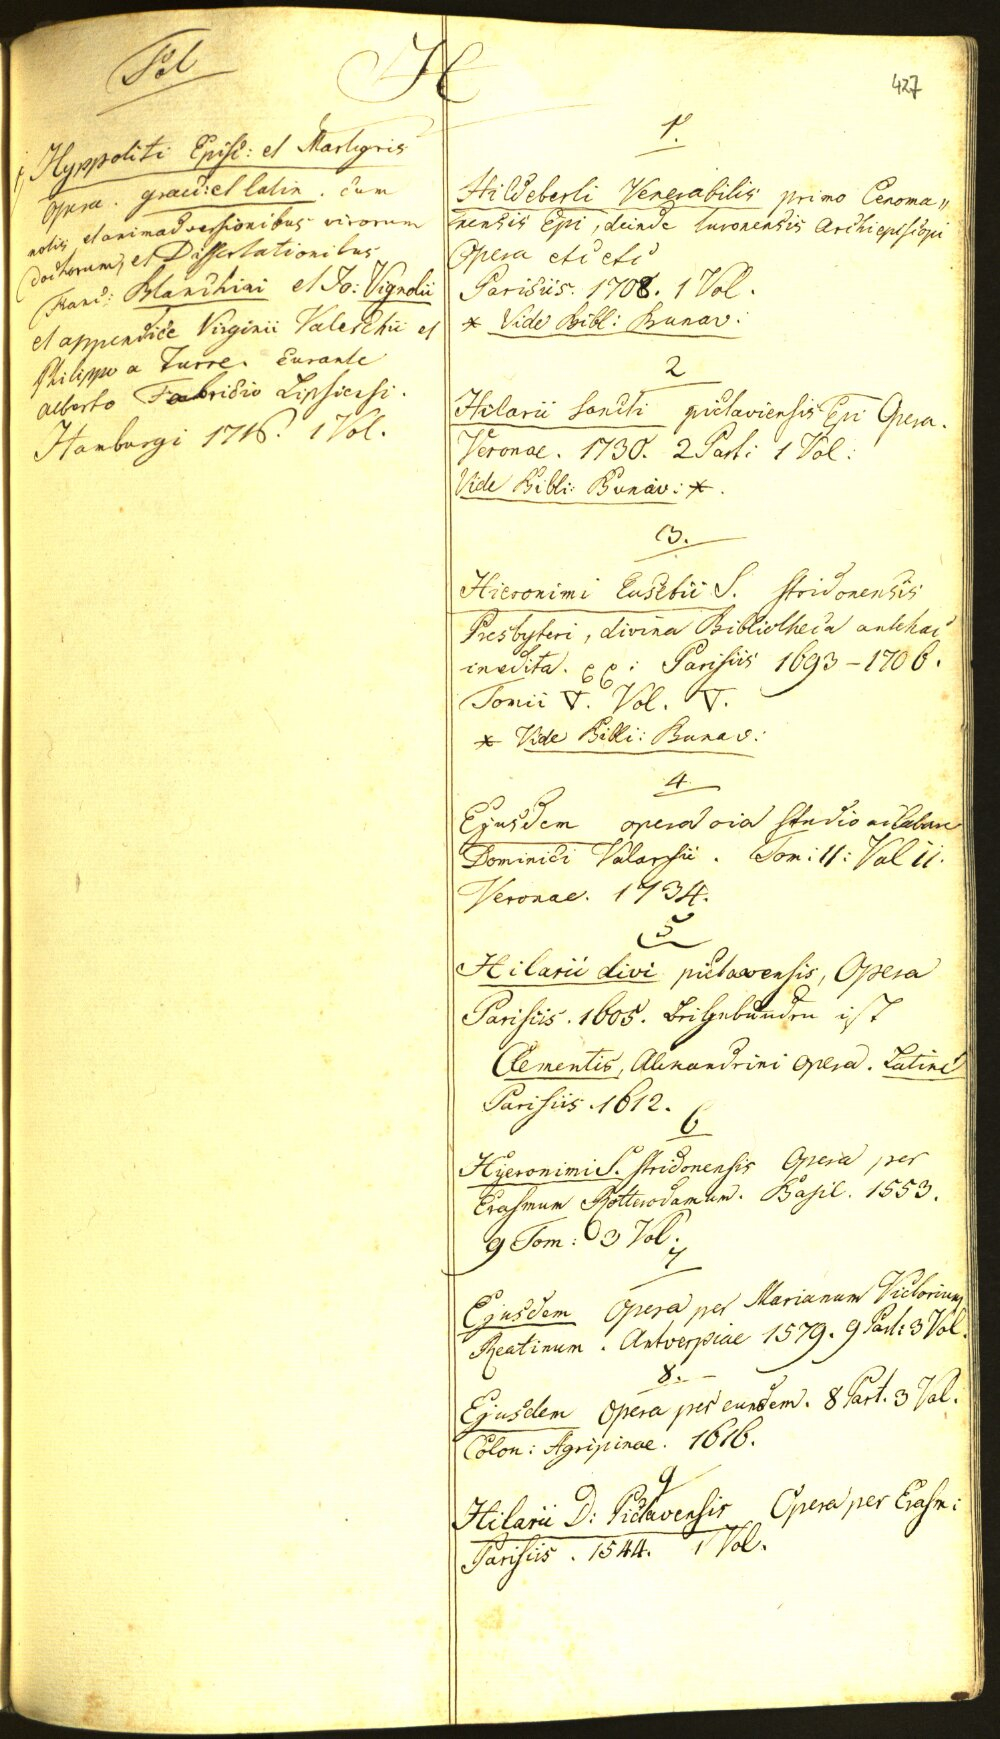 Fol
H
427
Hyppoliti Episc: et Martyris
Opera. graec: et latin. cum
notis et animadversionibus virorum
doctorum, et Dissertationibus
Franc: Blanchini et Jo: Vignolii
et appendice Virginii Valeschii et
Philippo a Turre. Curante
Alberto Fabricio Lipsiensi.
Hamburgi 1716. 1 Vol.
1.
Hildeberti Venerabilis primo Cenoma„
nensis Epi, deinde turonensis Archiepiscopi
Opera etc etc
Parisiis. 1708. 1 Vol.
* Vide Bibl: Bunav:
2
Hilarii sancti pictaviensis Epi Opera.
Veronae. 1730. 2 Part: 1 Vol:
Vide Bibli: Bunav: *.
3.
Hieronimi Eusebii S. stridonensis
Presbyteri, divina Bibliotheca antehac
inedita. Parisiis 1693-1706.
Tomii V. Vol. V.
* Vide Bibli: Bunav:
4.
Ejusdem opera oia studio ac labore
Dominici Valarsii. Tom: 11: Vol 11.
Veronae. 1734.
5
Hilarii divi pictavensis, Opera
Parisiis. 1605. beigebunden ist
Clementis, Alexandrini opera. Latine
Parisiis. 1612.
6
Hyeronimi S. stridonensis Opera per
Erasmum Rotterodamum. Basil. 1553.
9 Tom: 3 Vol.
7
Ejusdem Opera per Marianum Victorium
Reatinum. Antverpiae 1579. 9 Part: 3 Vol.
8.
Ejusdem Opera per eundem. 8 Part. 3 Vol.
Colon: Agripinae. 1616.
9
Hilarii D: Pictavensis Opera per Erasm:
Parisiis. 1544. 1 Vol.